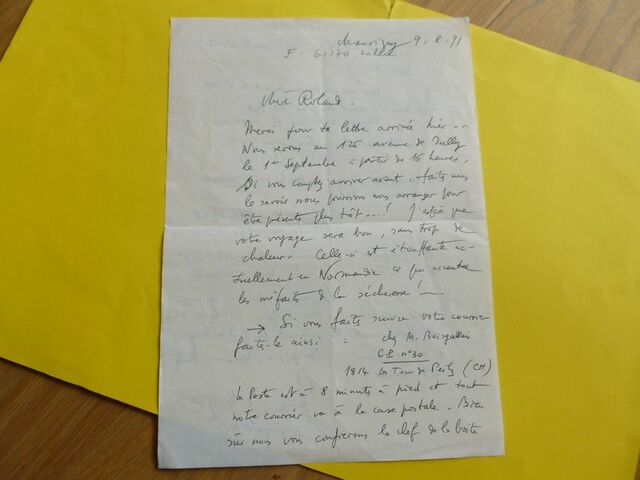 9.8.91
F. 61170
Cher Roland.
Merci pour ta lettre arrivée hier..
Nous serons au 126 avenue de Sully
le 1er Septembre à partir de 16 heures.
Si vous comptez arriver avant, faites nous
le savoir nous pourrions nous arranger pour
être présents plus tôt...! J'espère que
votre voyage sera bon, sans trop de
chaleur. Celle-ci est étouffante ac-
tuellement en Normandie ce qui accentue
les méfaits de la sécheresse!
→ Si vous faites suivre votre courrier
faites-le ainsi : chez M. Boisgallais
CP n°30
1814 La Tour de Peilz (CH)
La Poste est à 8 minutes à pied et tout
notre courrier va à la case postale. Bien
sûr nous vous confierons la clef de la boîte